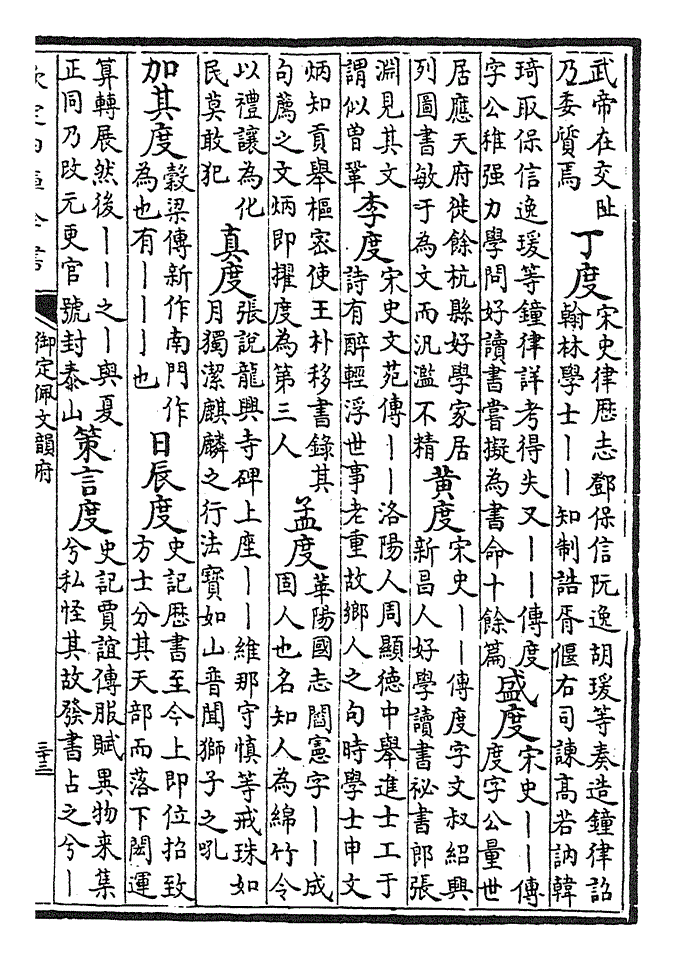 武帝在交趾
乃委質焉
丁度
宋史律歴志鄧保信阮逸胡瑗等奏造鐘律詔
翰林學士丨丨知制誥胥偃右司諫髙若訥韓
琦取保信逸瑗等鐘律詳考得失又丨丨傳度
字公稚强力學問好讀書嘗擬為書命十餘篇
盛度
宋史丨丨傳
度字公量世
居應天府徙餘杭縣好學家居
列圖書敏于為文而汎濫不精
黄度
宋史丨丨傳度字文叔紹興
新昌人好學讀書祕書郎張
淵見其文
謂似曾鞏
李度
宋史文苑傳丨丨洛陽人周顯德中舉進士工于
詩有醉輕浮世事老重故鄉人之句時學士申文
炳知貢舉樞宻使王朴移書録其
句薦之文炳即擢度為第三人
孟度
華陽國志閻憲字丨丨成
固人也名知人為綿竹令
以禮讓為化
民莫敢犯
真度
張說龍興寺碑上座丨丨維那守慎等戒珠如
月獨潔麒麟之行法寶如山普聞獅子之吼
加其度
榖梁傳新作南門作
為也有丨丨丨也
日辰度
史記歴書至今上即位招致
方士分其天部而落下閎運
算轉展然後丨丨之丨與夏
正同乃改元更官號封泰山
策言度
史記賈誼傳服賦異物来集
兮私怪其故發書占之兮丨
欽定四庫全書
御定佩文韻府
三十三